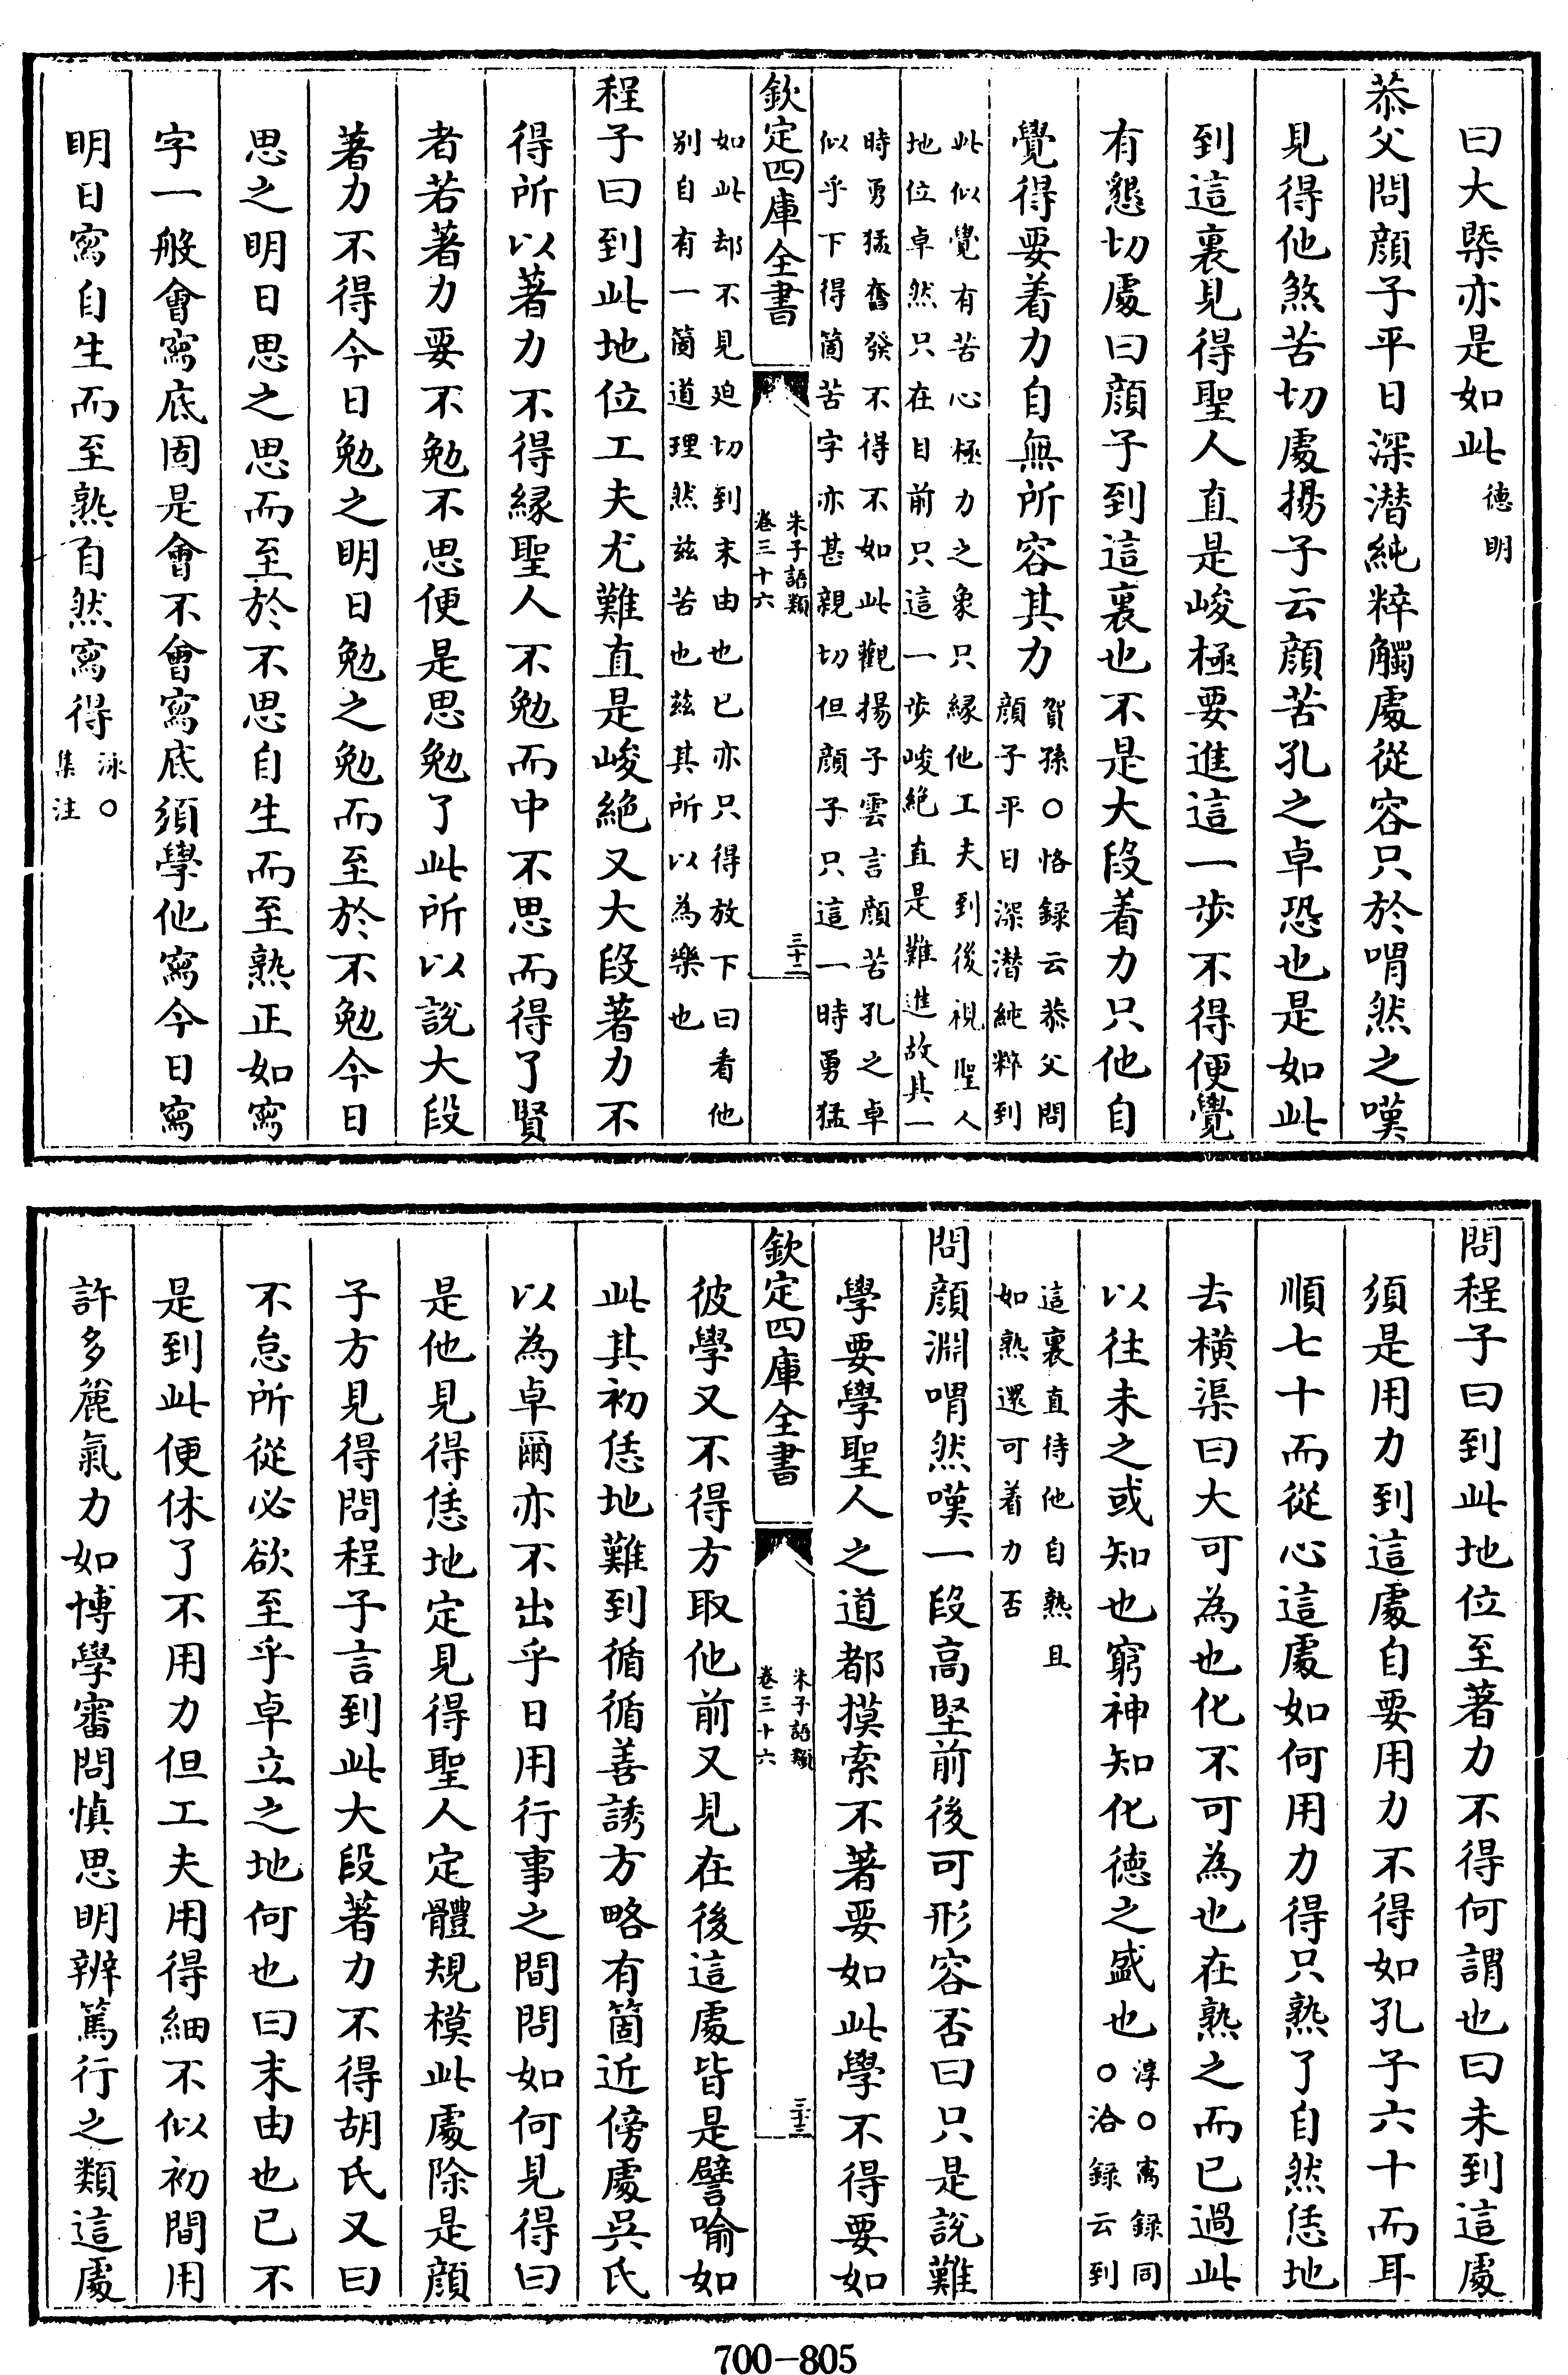 曰大槩亦是如此德明
恭父問顔子平日深潛純粹觸處從容只於喟然之嘆
見得他煞苦切處揚子云顔苦孔之卓恐也是如此
到這裏見得聖人直是峻極要進這一步不得便覺
有懇切處曰顔子到這裏也不是大段着力只他自
覺得要着力自無所容其力賀孫○恪録云恭父問
顔子平日深潛純粹到
此似覺有苦心極力之象只緣他工夫到後視聖人
地位卓然只在目前只這一步峻絶直是難進故其一
時勇猛奮發不得不如此觀揚子雲言顔苦孔之卓
似乎下得箇苦字亦甚親切但顔子只這一時勇猛
欽定四庫全書
朱子語類
卷三十六
三十二
如此却不見迫切到末由也已亦只得放下曰看他
别自有一箇道理然兹苦也兹其所以為樂也
程子曰到此地位工夫尤難直是峻絶又大段著力不
得所以著力不得緣聖人不勉而中不思而得了賢
者若著力要不勉不思便是思勉了此所以說大段
著力不得今日勉之明日勉之勉而至於不勉今日
思之明日思之思而至於不思自生而至熟正如寫
字一般會寫底固是會不會寫底須學他寫今日寫
明日寫自生而至熟自然寫得泳○
集注
問程子曰到此地位至著力不得何謂也曰未到這處
須是用力到這處自要用力不得如孔子六十而耳
順七十而從心這處如何用力得只熟了自然恁地
去橫渠曰大可為也化不可為也在熟之而已過此
以往未之或知也窮神知化德之盛也淳○㝢録同
○洽録云到
這裏直待他自熟且
如熟還可着力否
問顔淵喟然嘆一段高堅前後可形容否曰只是說難
學要學聖人之道都摸索不著要如此學不得要如
欽定四庫全書
朱子語類
卷三十六
三十三
彼學又不得方取他前又見在後這處皆是譬喻如
此其初恁地難到循循善誘方略有箇近傍處吳氏
以為卓爾亦不出乎日用行事之間問如何見得曰
是他見得恁地定見得聖人定體規模此處除是顔
子方見得問程子言到此大段著力不得胡氏又曰
不怠所從必欲至乎卓立之地何也曰末由也已不
是到此便休了不用力但工夫用得細不似初間用
許多麄氣力如博學審問慎思明辨篤行之類這處
700-805